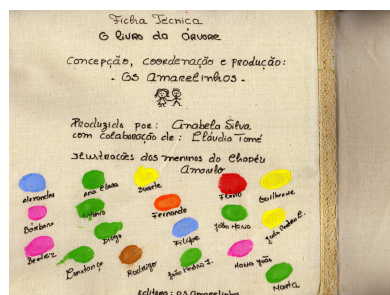 Ficha Técnica
O livro da árvore
Concepção, coordenação e produção:
- Os Amarelinhos -
Produzido por: Anabela Silva
com colaboração de: Cláudia Tomé
Ilustrações dos meninos do Chapéu
Amarelo
Alexandre Ana Clara Duarte Flávio Guilherme
Bárbara António Fernando João Maria João Pedro C.
Beatriz Diogo Filipe Maria João
Constança Rodrigo João Pedro S. Marta
Editora: Os Amarelinhos